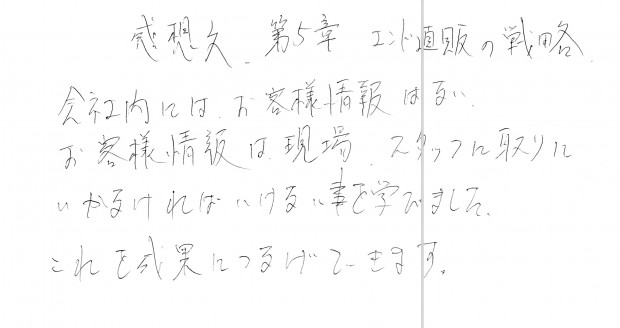 感想文 第5章 エンド直販の戦略
会社内には、お客様情報はない。
お客様情報は現場、スタッフに取りに
いかなければいけない事を学びました。
これを成果につなげていきます。